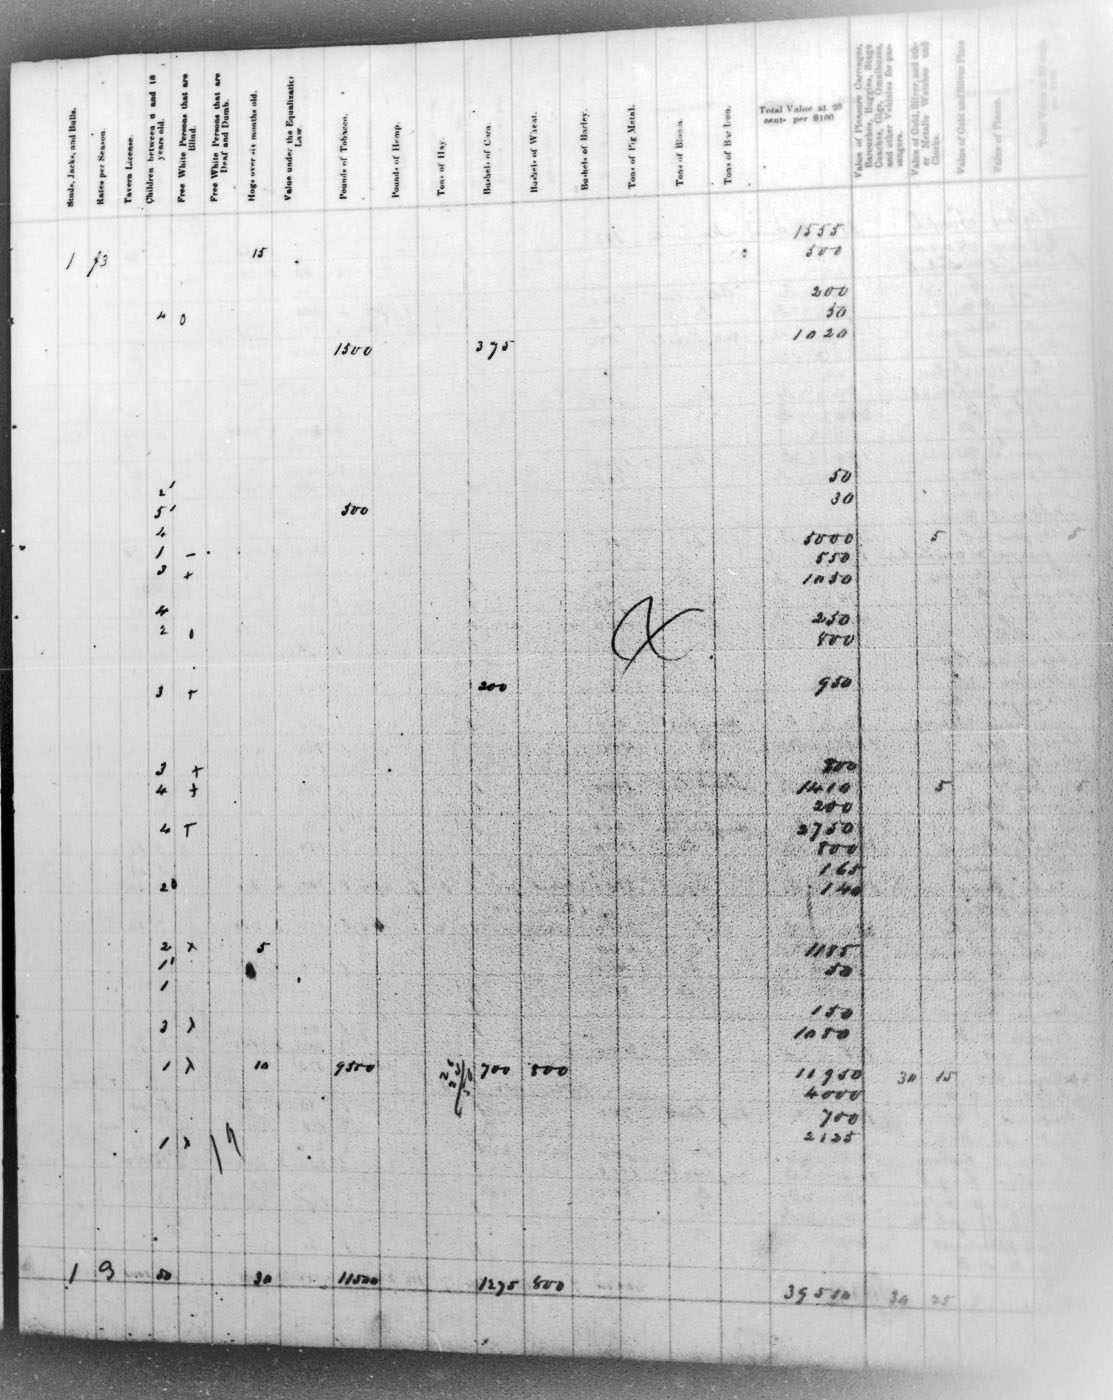 Studs, Jacks, and Bulls.
Rates per Season.
Tavern License.
Children between 6 and 18 years old.
Free White Persons that are Blind.
Free White Persons that are Deaf and Dumb.
Hogs over six months old.
Value under the Equalization Law.
Pounds of Tobacco.
Pounds of Hemp.
Tons of Hay.
Bushels of Corn.
Bushels of Wheat.
Bushels of Barley.
Tons of Pig Metal.
Tons of Bloom.
Tons of Bar Iron.
Total Value at 20 cents per $100
Value of Pleasure Carriages, Barouches, Buggies, Stage Coaches, Gigs, Omnibuses, and other Vehicles for passengers.
Value of Gold, Silver, and other Metalic Watches and Clocks.
Value of Gold and Silver Plate
Value of Pianos.
1555
1 3 15 500
200
4 0 50
1500 375 1020
50
2 30
5 500
4 5000 5 5
1 - 550
3 + 1050
4 250
2 0 800
3 + 200 950
3 + 800
4 + 1410 5
200
4 2750
800
165
2 140
2 x 5 1185
1 50
1
150
3 1080
1 10 9500 700 800 11950 30 15
4000
700
1 2125
1 3 50 30 11500 1275 800 39500 30 25